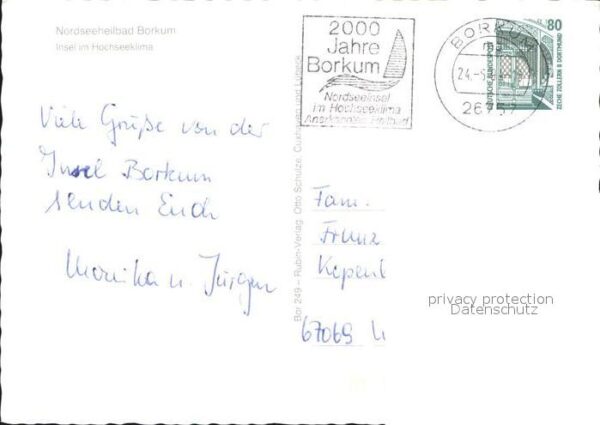 Nordseeheilbad Borkum
Insel im Hochseeklima
2000
Jahre
Borkum
Nordseeinsel
im Hochseeklima
Anerkanntes Heilbad
BORKUM
24.-5
26757
80
DEUTSCHE BUNDESPOST
ZECHE ZOLLERN II DORTMUND
Viele Grüße von der
Insel Borkum
senden Euch
Monika u. Jürgen
Bor 249 – Rubin-Verlag, Otto Schulze, Cuxhaven und Lübeck
Fam.
Franz
67069
privacy protection
Datenschutz